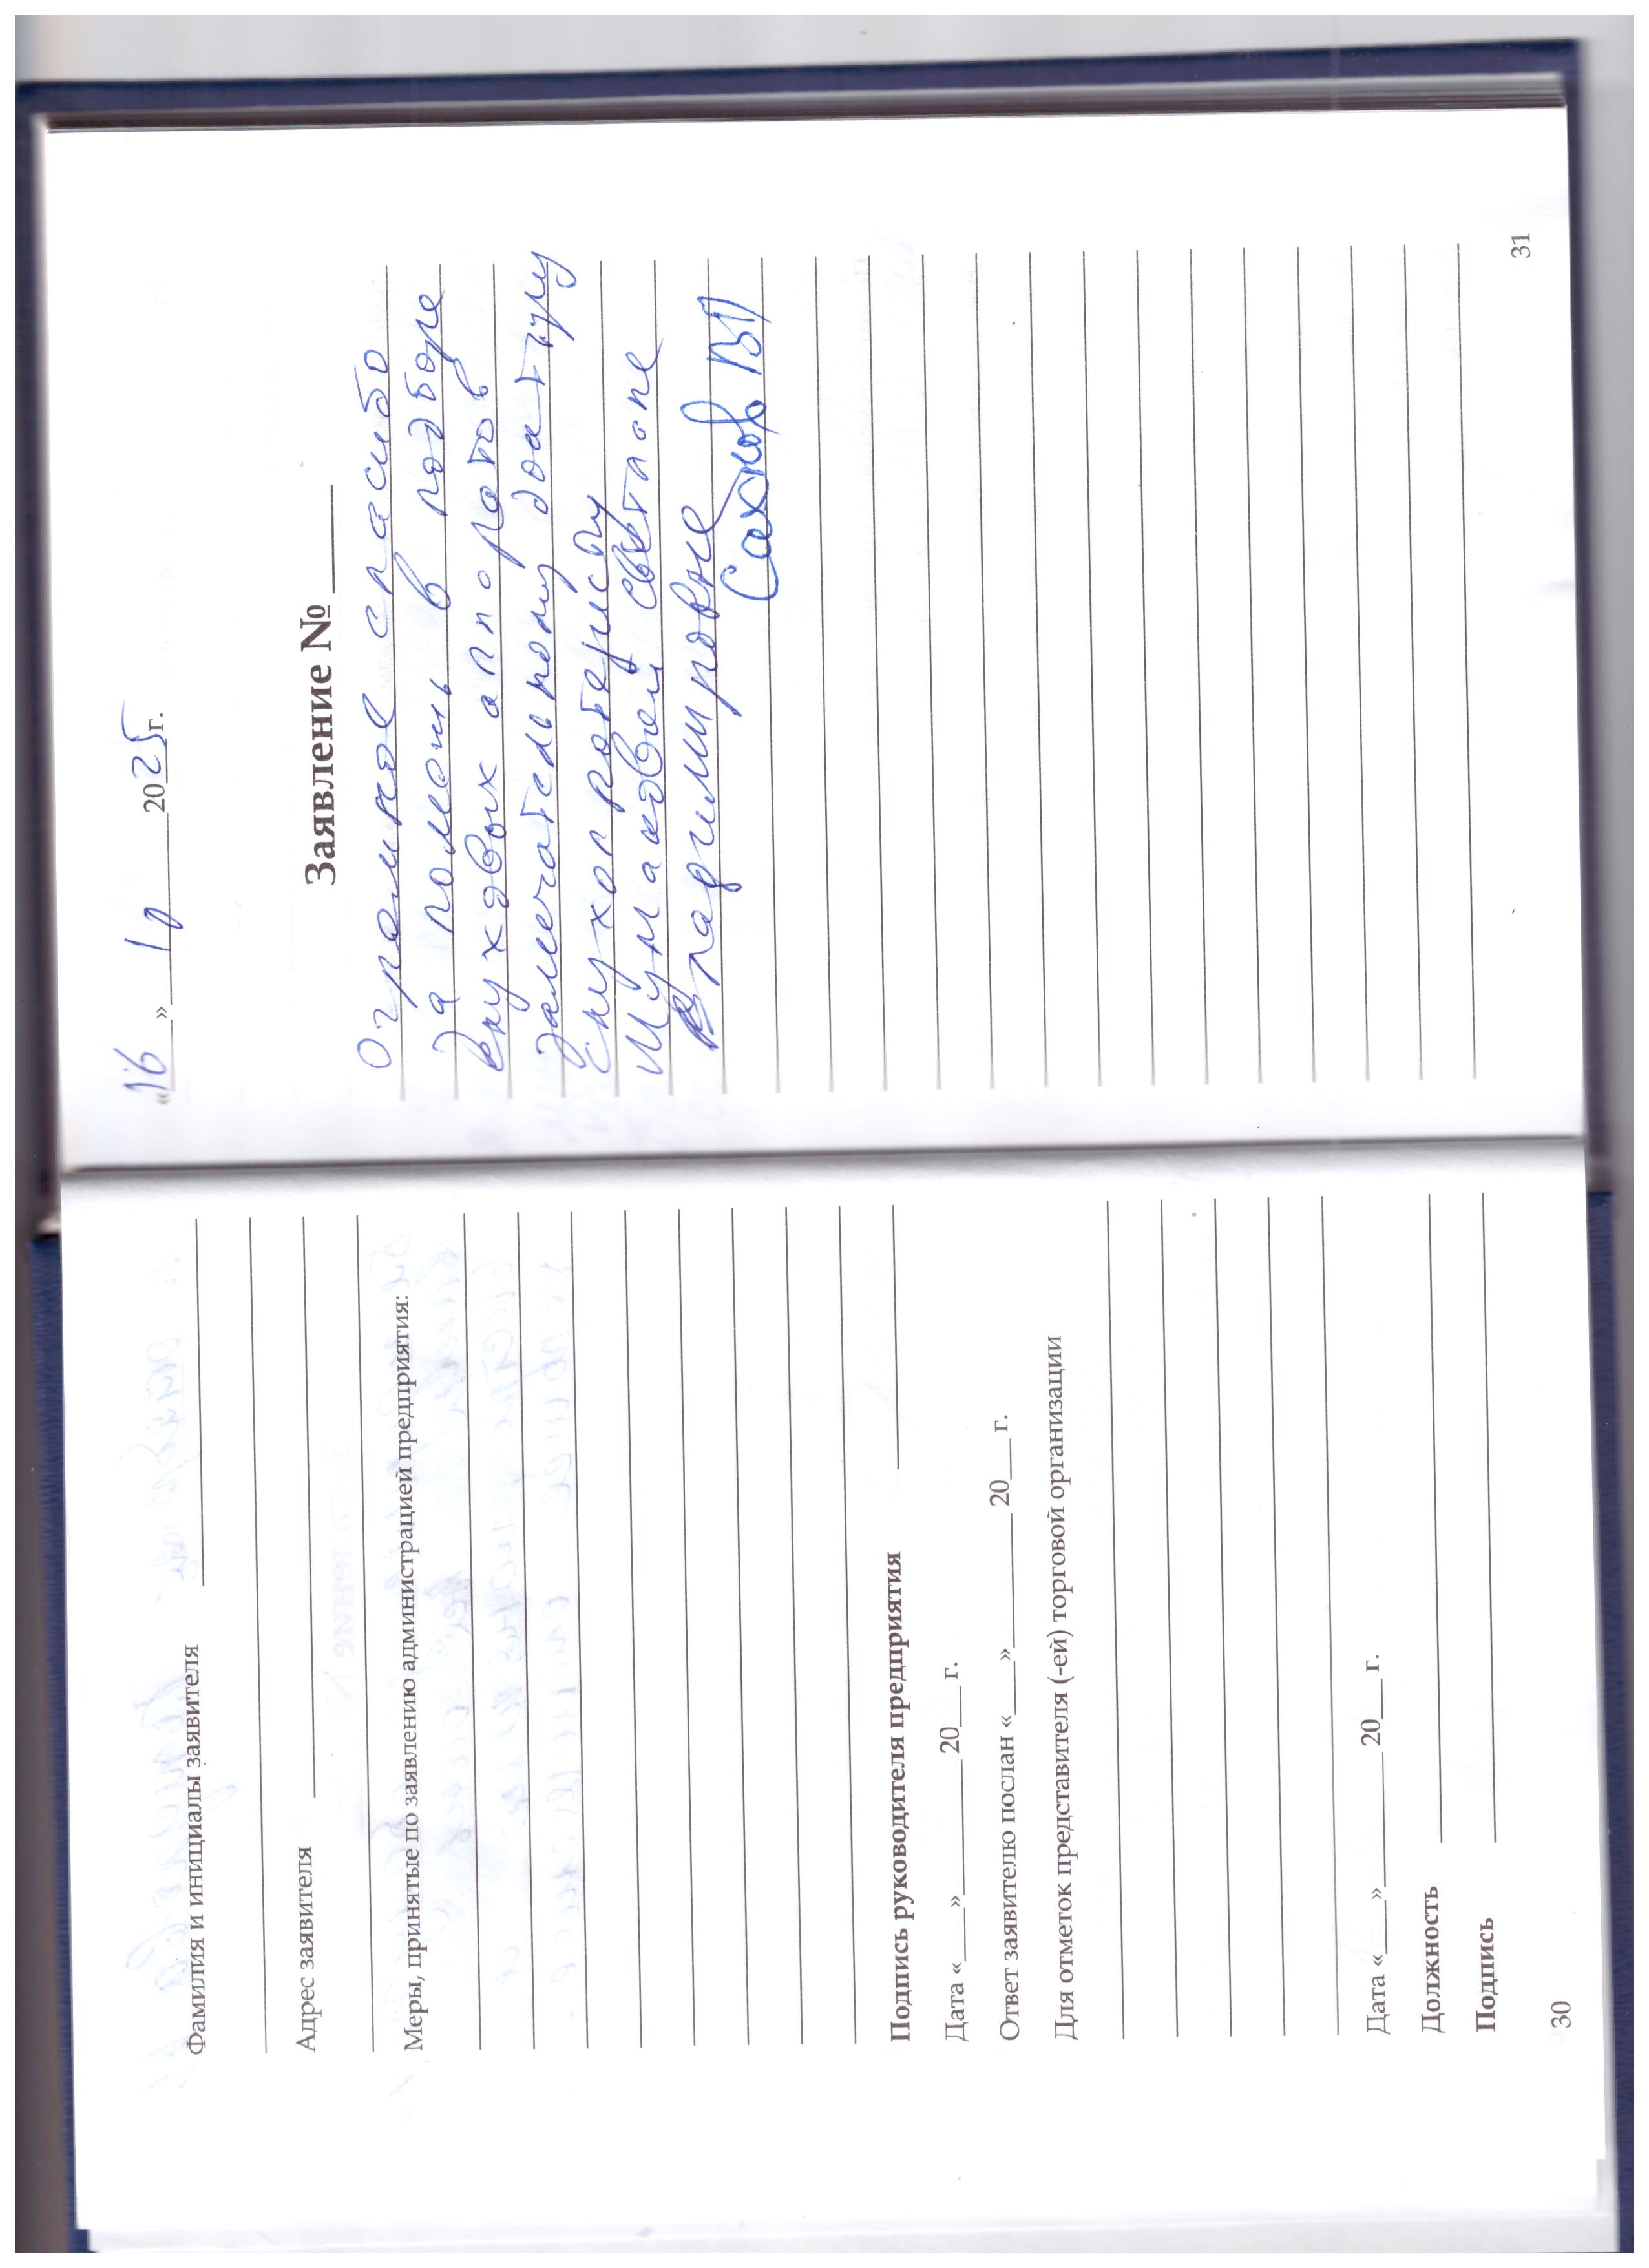 Фамилия и инициалы заявителя
Адрес заявителя
Меры, принятые по заявлению администрацией предприятия:
Подпись руководителя предприятия
Дата «___»__________ 20__ г.
Ответ заявителю послан «___»__________ 20__ г.
Для отметок представителя (-ей) торговой организации
Дата «___»__________ 20__ г.
Должность
Подпись
30
«16» 10 2025г.
Заявление № ____
Огромное спасибо
за помощь в подборе
слуховых аппоратов
замечательному доктору
слухопротезисту
Шумаковой Светлане
Владимировне
Сахнов ВП
31